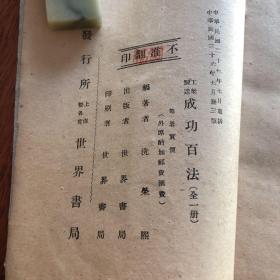 中華民國二十九年七月重排
中華民國三十六年九月三版
工業製造
成功百法(全一冊)
每冊實價
(外埠酌加郵費匯費)
不准翻印
編著者 冼榮熙
出版者 世界書局
印刷者 世界書局
發行所 世界書局